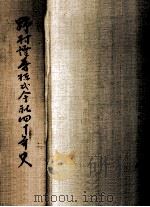 野村證券株式会社四十年史